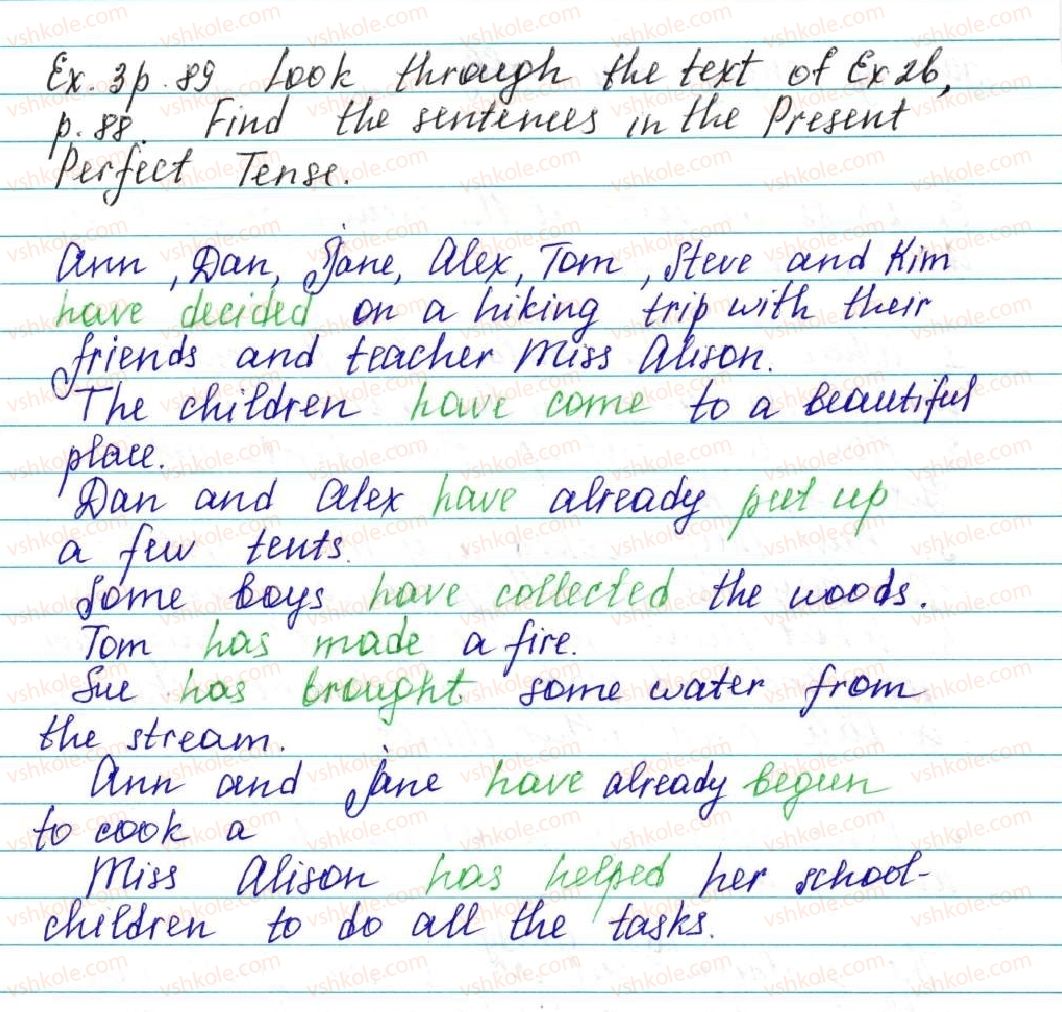 Ex. 3 p. 89 Look through the text of Ex 2b,
p. 88. Find the sentences in the Present
Perfect Tense.
Ann, Dan, Jane, Alex, Tom, Steve and Kim
have decided on a hiking trip with their
friends and teacher Miss Alison.
The children have come to a beautiful
place.
Dan and Alex have already put up
a few tents.
Some boys have collected the woods.
Tom has made a fire.
Sue has brought some water from
the stream.
Ann and Jane have already begun
to cook a
Miss Alison has helped her school-
children to do all the tasks.